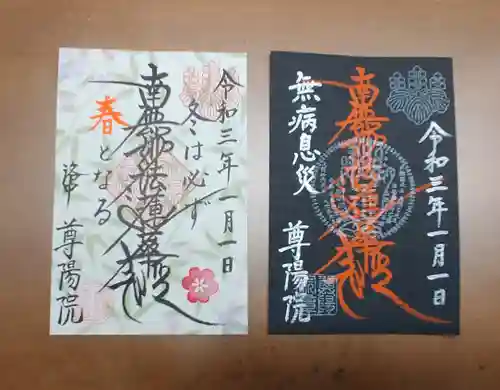 令和三年一月一日
冬は必ず
南無妙法蓮華経
春
となる
尊陽院
令和三年一月一日
南無妙法蓮華経
無病息災
尊陽院